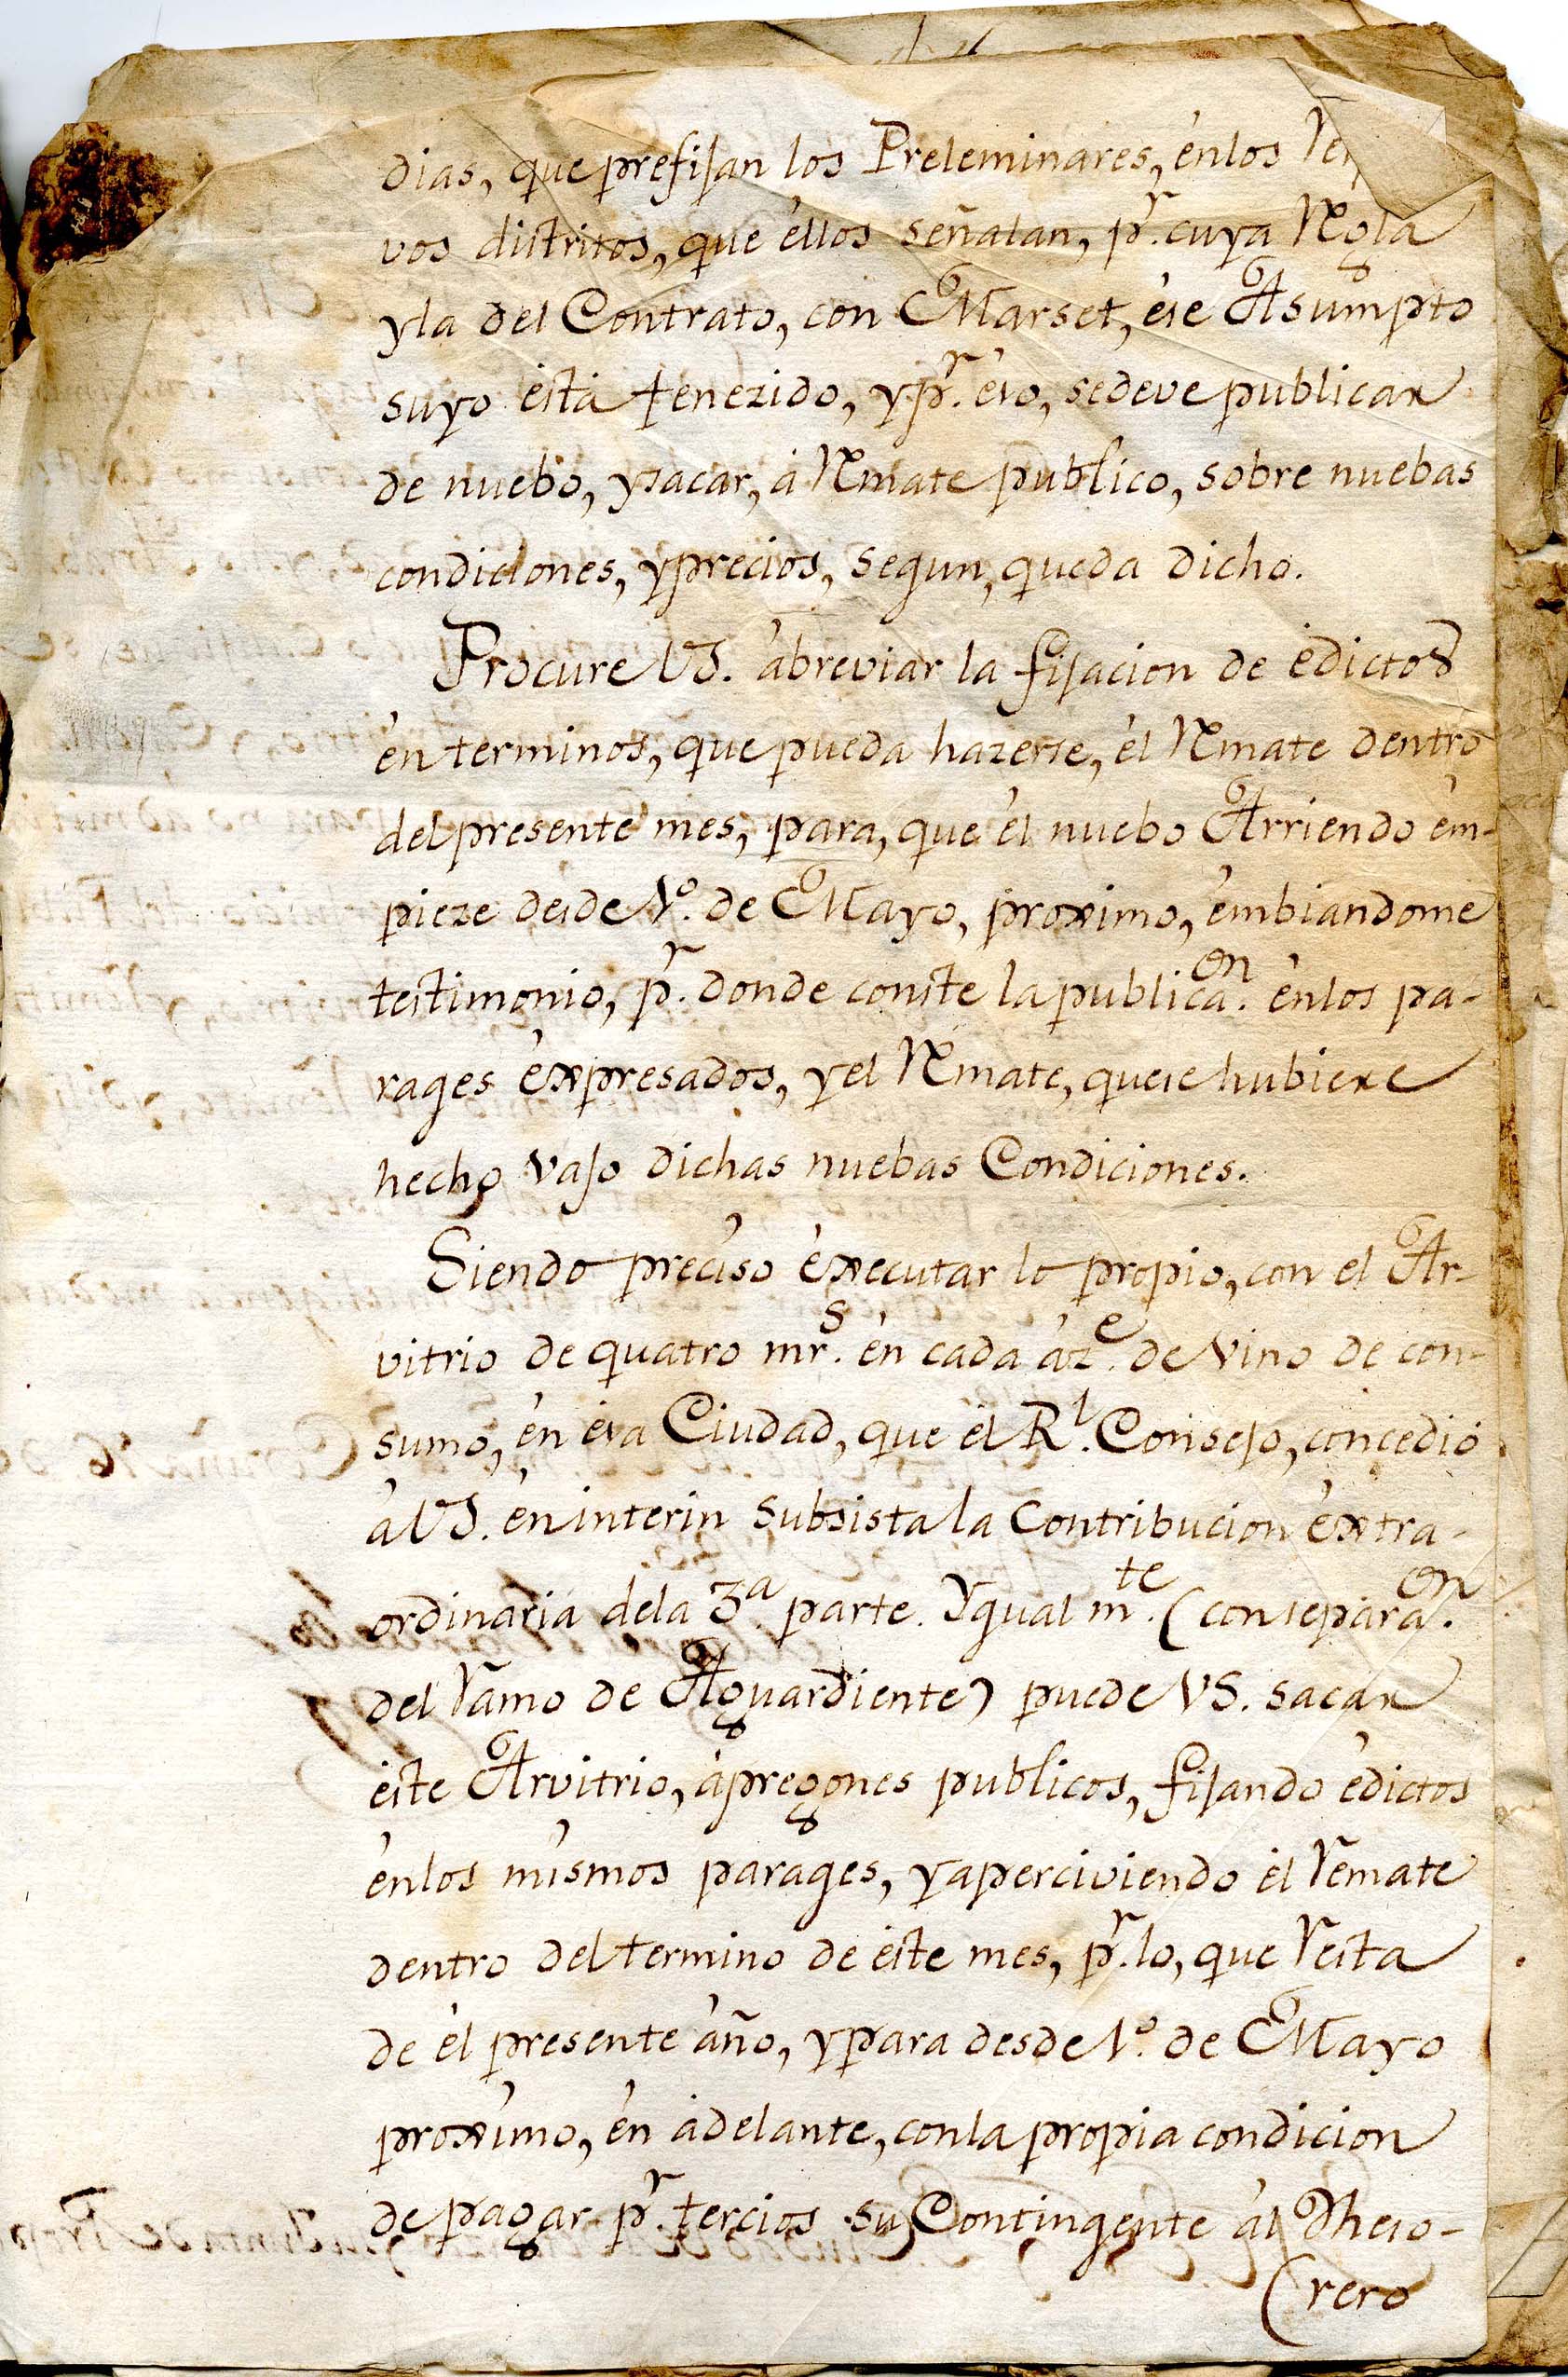 dias, que prefijan los Preleminares, enlos
vos distritos, que ellos señalan, pr. cuya Regla
yla del Contrato, con Marset, ese Asumpto
suyo está fenezido, y pr. eso, sedeve publicar
de nuebo, ysacar, á Remate publico, sobre nuebas
condiciones, yprecios, segun, queda dicho.
Procure VS. ábreviar la fijacion de edictos
én terminos, que pueda hazerse, él Remate dentro
del presente mes, para, que él nuebo Arriendo ém-
pieze desde 1º. de Mayo, proximo, émbiandome
testimonio, pr. donde conste la publicaon. énlos pa-
rages éxpresados, yel Remate, quese hubiere
hecho vajo dichas nuebas Condiciones.
Siendo preciso éxecutar lo propio, con el Ar-
vitrio de quatro mrs. én cada áze. de vino de con-
sumo, én esa Ciudad, que él Rl. Consejo, concedió
á VS. én interin subsista la Contribucion éxtra-
ordinaria dela 3ª. parte. Ygual mte. (con separaon.
del Ramo de Aguardiente) puede VS. sacar
éste Arvitrio, ápregones publicos, fijando édictos
énlos mismos parages, yaperciviendo él Remate
dentro del termino de éste mes, pr. lo, que Resta
de él presente áño, ypara desde 1º. de Mayo
proximo, én ádelante, conla propia condicion
de pagar pr. tercios su Contingente ál Theso-
(rero